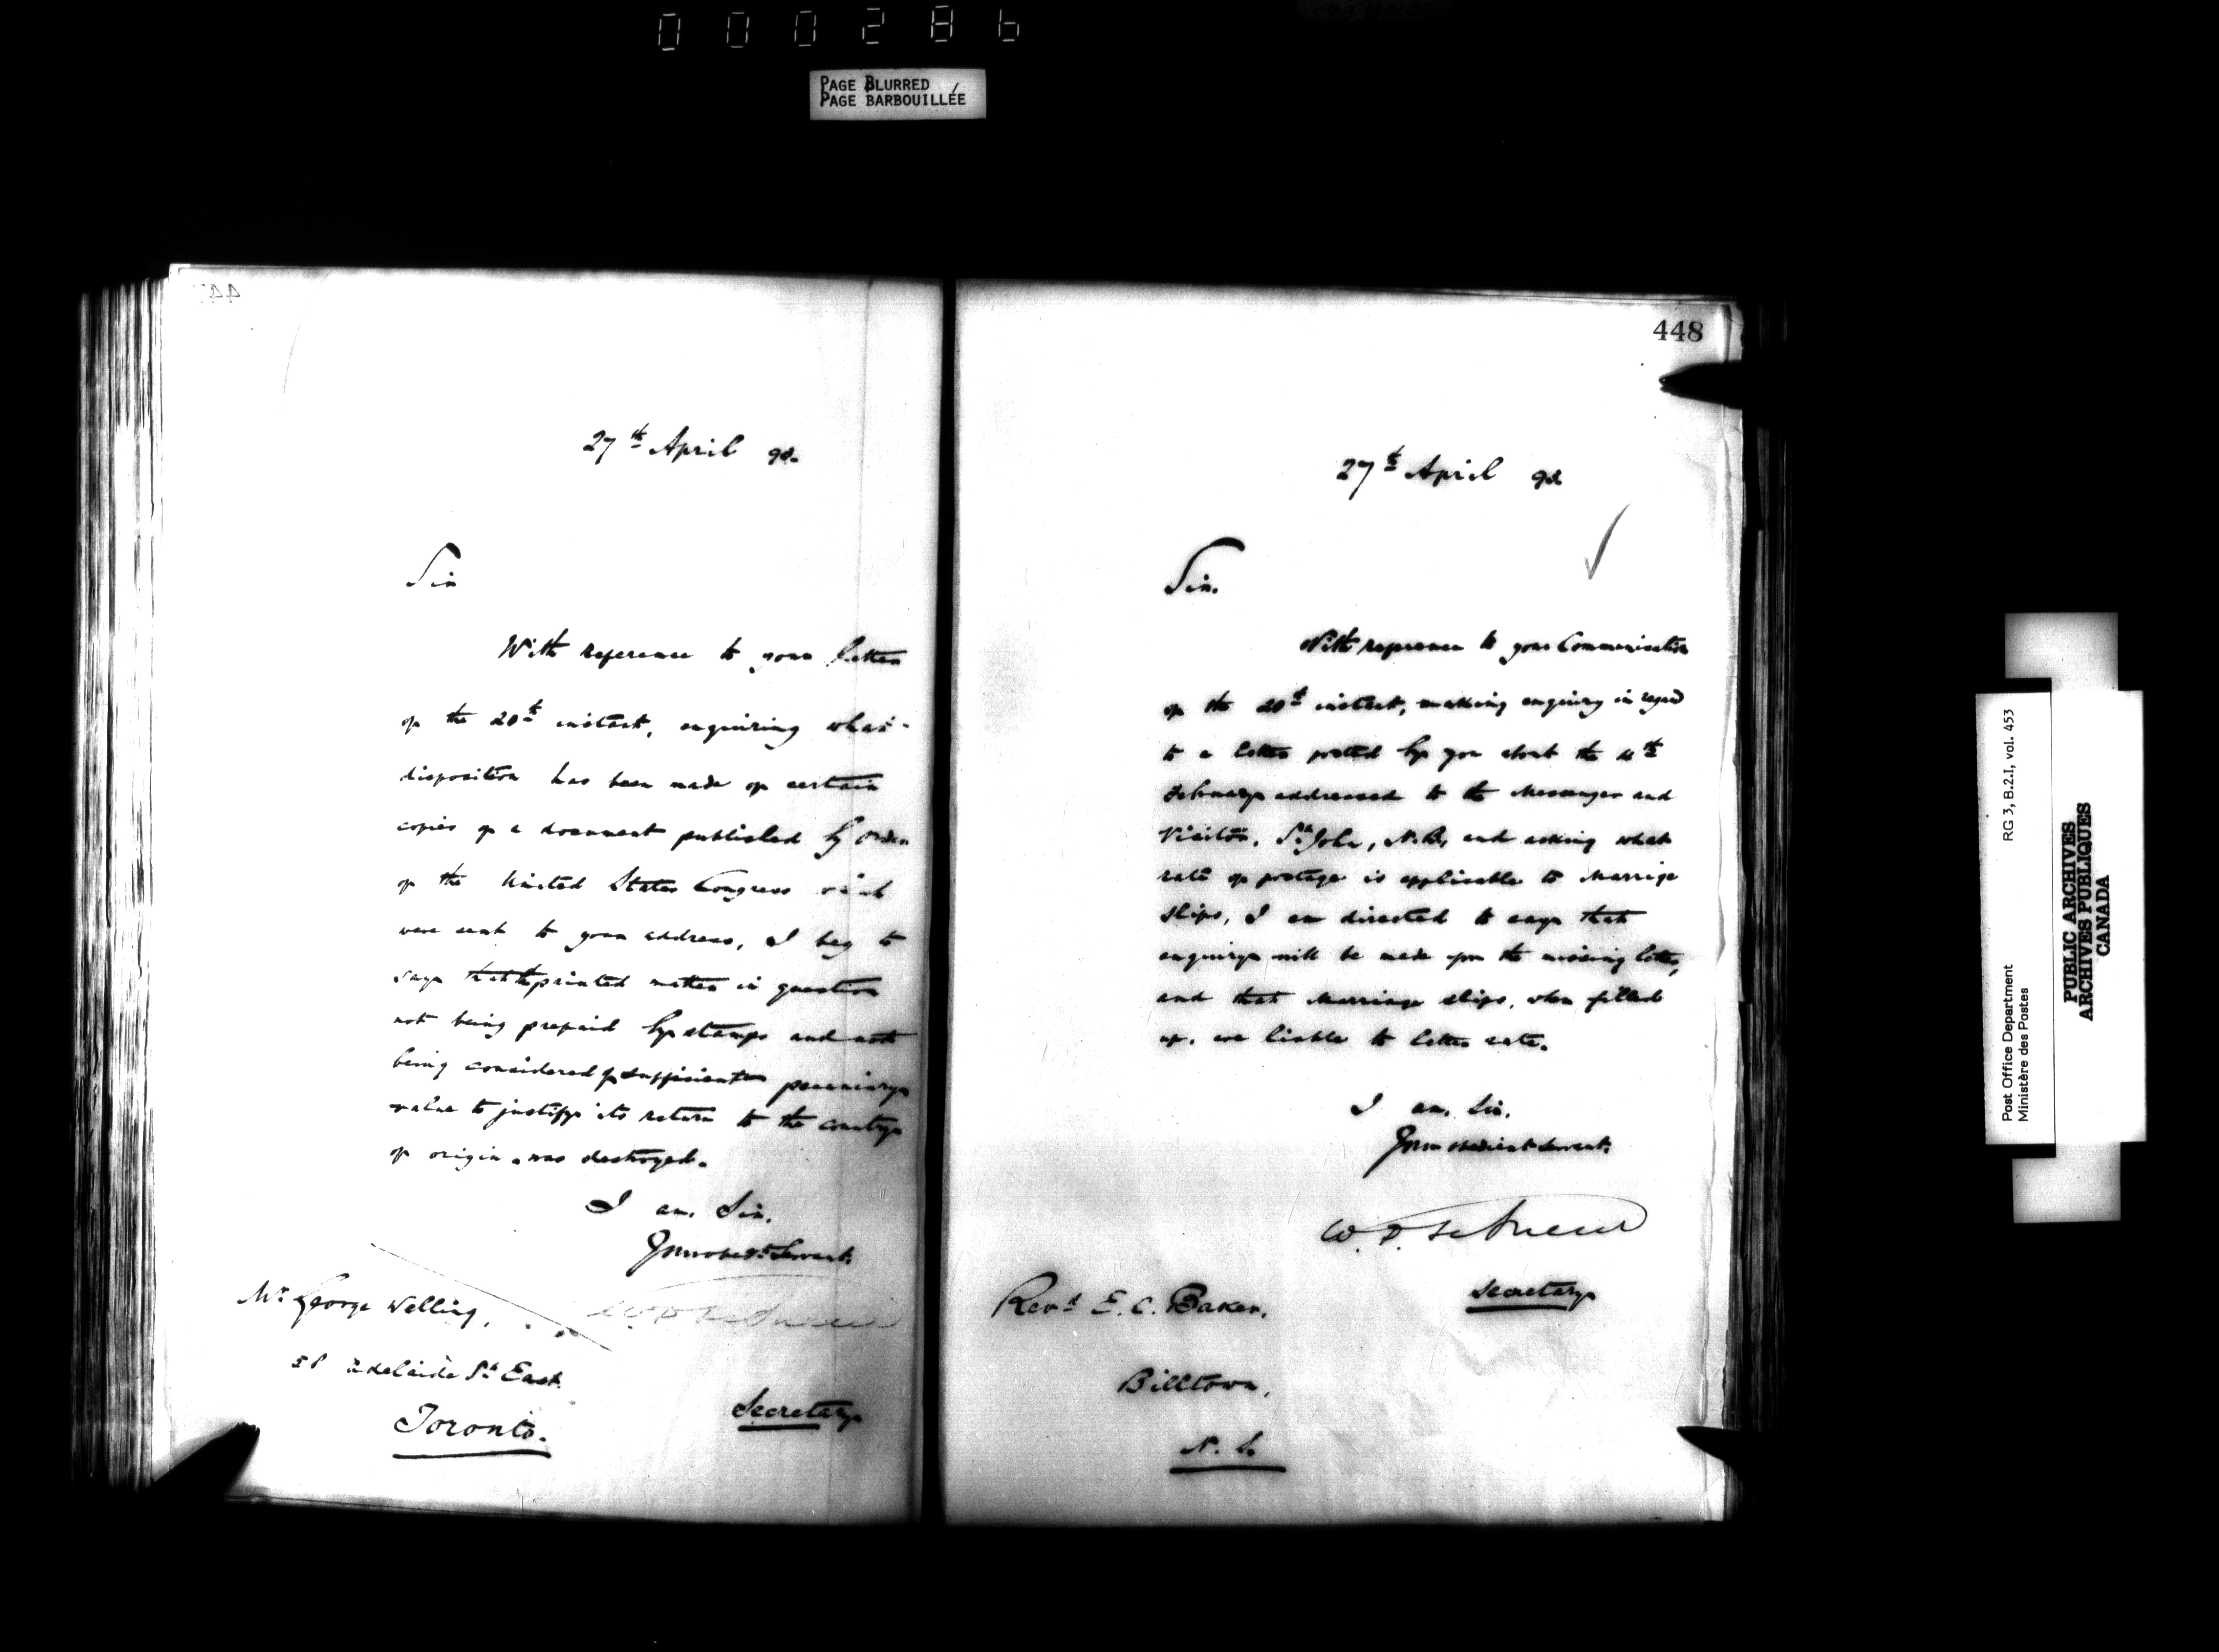 000286
PAGE BLURRED
PAGE BARBOUILLÉE
27th April 98.
Sir
With reference to your letter
of the 20th instant, enquiring what
disposition has been made of certain
copies of a document published by order
of the United States Congress which
were sent to your address, I beg to
say that the printed matter in question
not being prepaid by stamps and not
being considered of sufficient pecuniary
value to justify its return to the country
of origin, was destroyed.
I am, Sir,
Your obedt Servant.
W. D. LeSueur
Mr George Welling,
58 Adelaide St East.
Secretary
Toronto.
448
27th April 98
Sir.
With reference to your Communication
of the 20th instant, making enquiry in regard
to a letter posted by you about the 4th
February addressed to the Messenger and
Visitor, St John, N.B, and asking what
rate of postage is applicable to Marriage
slips, I am directed to say that
enquiry will be made for the missing letter,
and that Marriage slips, when filled
up, are liable to letter rate.
I am, Sir,
Your obedient Servant.
W. D. LeSueur
Secretary
Revd E. C. Baker,
Billtown,
N. S.
Post Office Department RG 3, B.2.I, vol. 453
Ministère des Postes
PUBLIC ARCHIVES
ARCHIVES PUBLIQUES
CANADA